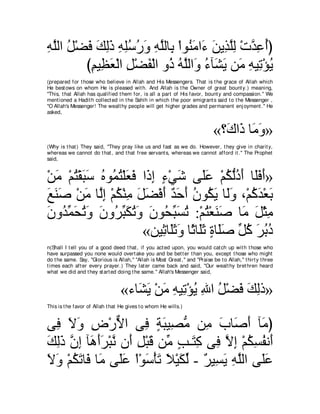 أُعِدَّتْ لِلَّذِينَ ءَامَنُواْ بِاللَّهِ وَرُسُلِهِ ذَلِكَ فَضْلُ اللَّهِ
يُؤْتِيهِ مَن يَشَآءُ وَاللَّهُ ذُو الْفَضْلِ الْعَظِيمِ)
(prepared for those who believe in Allah and His Messengers. That is the grace of Allah which He bestows on whom He is pleased with. And Allah is the Owner of great bounty.) meaning, "This, that Allah has qualified them for, is all a part of His favor, bounty and compassion." We mentioned a Hadith collected in the Sahih in which the poor emigrants said to the Messenger , "O Allah's Messenger! The wealthy people will get higher grades and permanent enjoyment." He asked,
«وَمَا ذَاكَ؟»
(Why is that) They said, "They pray like us and fast as we do. However, they give in charity, whereas we cannot do that, and that free servants, whereas we cannot afford it." The Prophet said,
«أَفَلَا أَدُلُّكُمْ عَلَى شَيْءٍ إِذَا فَعَلْتُمُوهُ سَبَقْتُمْ مَنْ
بَعْدَكُمْ، وَلَا يَكُونُ أَحَدٌ أَفْضَلَ مِنْكُمْ إِلَّا مَنْ صَنَعَ
مِثْلَ مَا صَنَعْتُمْ: تُسَبِّحُونَ وَتُكَبِّرُونَ وَتُحْمَدُونَ
دُبُرَ كُلِّ صَلَاةٍ ثَلَاثًا وَثَلَاثِين»
(Shall I tell you of a good deed that, if you acted upon, you would catch up with those who have surpassed you none would overtake you and be better than you, except those who might do the same. Say, "Glorious is Allah," "Allah is Most Great," and "Praise be to Allah," thirty three times each after every prayer.) They later came back and said, "Our wealthy brethren heard what we did and they started doing the same." Allah's Messenger said,
«ذَلِكَ فَضْلُ اللهِ يُؤْتِيهِ مَنْ يَشَاء»
This is the favor of Allah that He gives to whom He wills.)
(مَآ أَصَابَ مِن مُّصِيبَةٍ فِى الاٌّرْضِ وَلاَ فِى
أَنفُسِكُمْ إِلاَّ فِى كِتَـبٍ مِّن قَبْلِ أَن نَّبْرَأَهَآ إِنَّ ذَلِكَ
عَلَى اللَّهِ يَسِيرٌ - لِّكَيْلاَ تَأْسَوْاْ عَلَى مَا فَاتَكُمْ وَلاَ